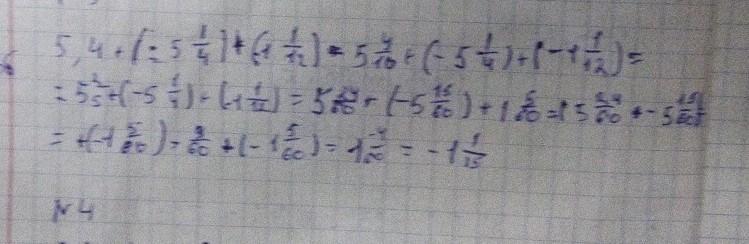 5,4 + (-5 1/4) + (-1 1/12) = 5 4/10 + (-5 1/4) + (-1 1/12) =
= 5 2/5 + (-5 1/4) - (-1 1/12) = 5 24/60 + (-5 15/60) + 1 5/60 = (5 24/60 + -5 15/60)
= +(-1 5/60) = 9/60 + (-1 5/60) = -1 4/60 = -1 1/15
№4